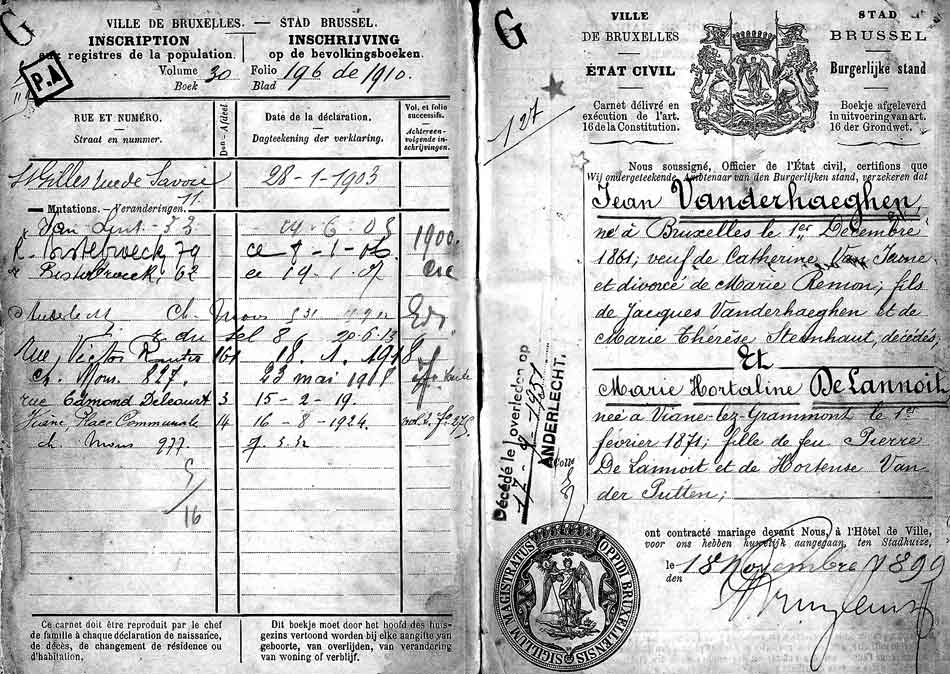 G
VILLE DE BRUXELLES. — STAD BRUSSEL.
INSCRIPTION
aux registres de la population.
INSCHRIJVING
op de bevolkingsboeken.
P.A
Volume 30 Folio 196 de 1910.
Boek Blad
RUE ET NUMÉRO.
Straat en nummer.
Date de la déclaration.
Dagteekening der verklaring.
Vol. et folio
successifs.
Achtereen-
volgende in-
schrijvingen.
St Gilles rue de Savoie 28-1-1903
Mutations. — Veranderingen. 11.
1900.
62
rue Victor 18. 1. 1918
ch. Mons. 827. 23 mai 1918
rue Edmond Delcourt 3 15-2-19.
Viane Place Communale 14 16-8-1924.
ch. Mons 977
16
Ce carnet doit être reproduit par le chef
de famille à chaque déclaration de naissance,
de décès, de changement de résidence ou
d'habitation.
Dit boekje moet door het hoofd des huis-
gezins vertoond worden bij elke aangifte van
geboorte, van overlijden, van verandering
van woning of verblijf.
G
VILLE
DE BRUXELLES
ÉTAT CIVIL
Carnet délivré en
exécution de l'art.
16 de la Constitution.
STAD
BRUSSEL
Burgerlijke stand
Boekje afgeleverd
in uitvoering van art.
16 der Grondwet.
127
Nous soussigné, Officier de l'État civil, certifions que
Wij ondergeteekende, Ambtenaar van den Burgerlijken stand, verzekeren dat
Jean Vanderhaeghen,
né à Bruxelles le 1er Décembre
1861; veuf de Catherine Van
et divorcé de Marie Remon; fils
de Jacques Vanderhaeghen et de
Marie Thérèse Steenhaut, décédés;
Et
Marie Hortaline De Lannoit
née à Viane-lez-Grammont le 1er
février 1871; fille de feu Pierre
De Lannoit et de Hortense Van
der Putten;
Décédé le / overleden op
1951
ANDERLECHT.
ont contracté mariage devant Nous, à l'Hôtel de Ville,
voor ons hebben huwelijk aangegaan, ten Stadhuize,
le 18 Novembre 1899
den
SIGILLUM MAGISTRATUS OPPIDI BRUXELLENSIS